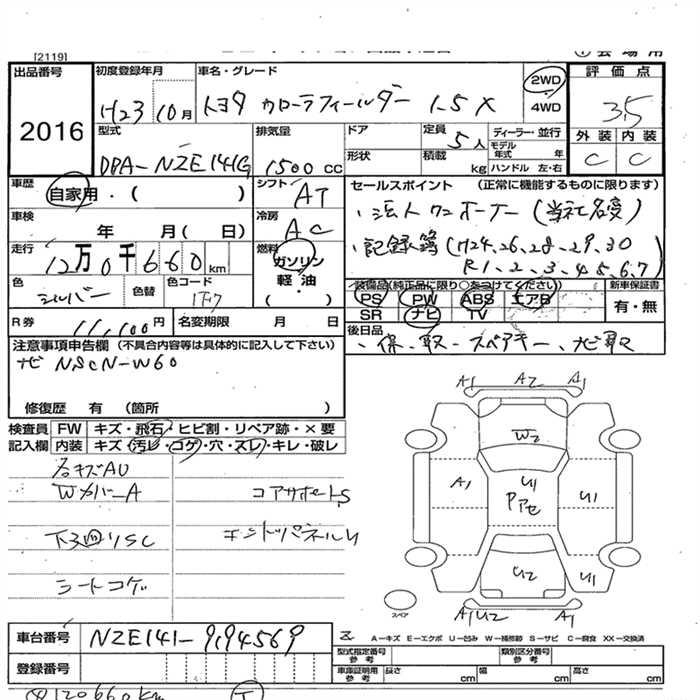 [2119]
会場用
出品番号 2016
初度登録年月 H23 10月
車名・グレード トヨタ カローラフィールダー 1.5 X
2WD
4WD
評価点 3.5
外装 内装
C C
型式 DBA-NZE141G
排気量 1500cc
ドア
形状
定員 5人
積載 kg
ディーラー・並行
モデル年式 年
ハンドル 左・右
車歴 自家用・( )
シフト AT
車検 年 月( 日)
冷房 AC
走行 12万0千660km
燃料 ガソリン
軽油
・( )
色 シルバー 色替 色コード 1F7
R券 11,100円 名変期限 月 日
セールスポイント (正常に機能するものに限ります)
・法人ワンオーナー(当社名変)
・記録簿(H24、26、28、29、30
R1、2、3、4、5、6、7)
装備品(純正品に限り○をつけてください) 新車保証書
PS PW ABS エアB 有・無
SR ナビ TV
後日品
・保、取、スペアキー、ナビ取
注意事項申告欄 (不具合箇所等は具体的に記入して下さい)
ナビ NSCN-W60
修復歴 有 (箇所 )
検査員 FW キズ・飛石・ヒビ割・リペア跡・×要
記入欄 内装 キズ・汚レ・コゲ・穴・スレ・キレ・破レ
右キズAU
WカバーA
コアサポートS
下回りSC
エンドパネルU
シートコゲ
A1 A2 A1
W2
A1 U1 U1
Pアセ
U2 U1
A1 U2 A1
スペア
A－キズ E－エクボ U－凹み W－補修跡 S－サビ C－腐食 XX－交換済
車台番号 NZE141-9194569
登録番号
型式指定番号 参考
類別区分番号 参考
車庫証明用 参考 長さ cm 幅 cm 高さ cm
120660km